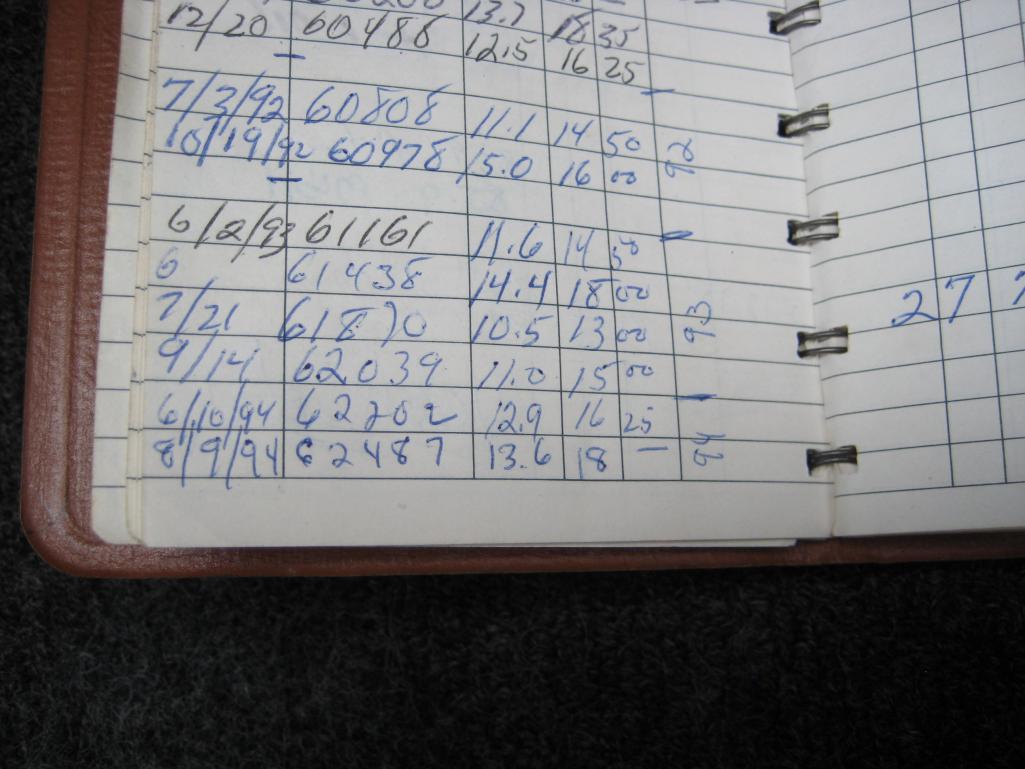 13.7
12/20 60486 12.5 18 35
16 25
7/3/92 60808 11.1 14 50
10/19/92 60978 15.0 16 00 92
6/2/93 61161 11.6 14 50
6 61438 14.4 18 00
7/21 61870 10.5 13 00 93
9/14 62039 11.0 15 00
6/10/94 62202 12.9 16 25
8/9/94 62487 13.6 18 — 94
27